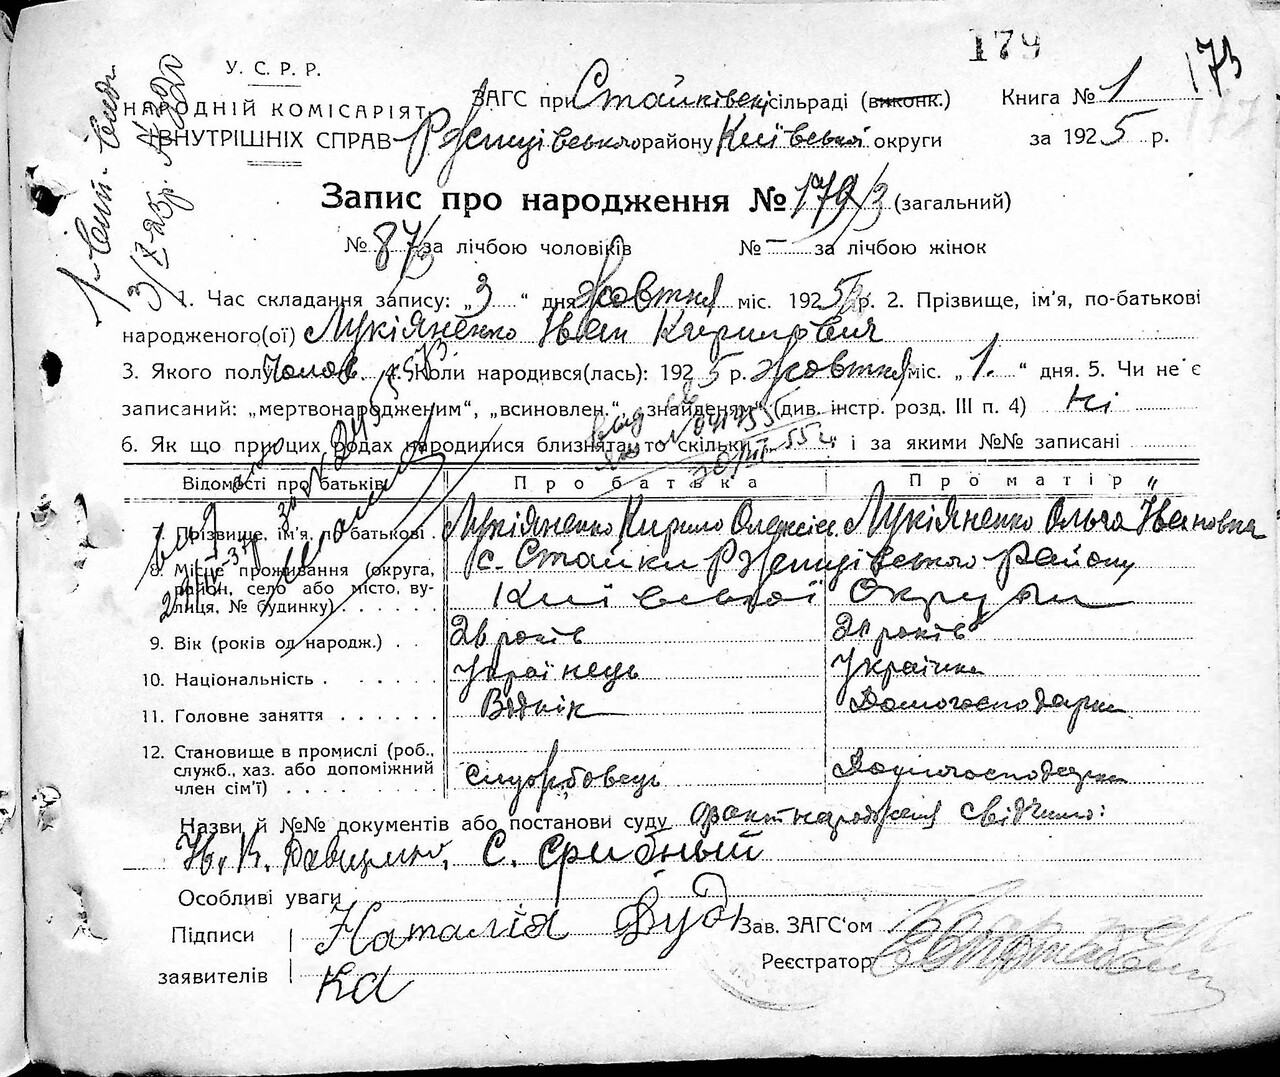 179
173
177
У. С. Р. Р.
НАРОДНІЙ КОМІСАРІЯТ
ВНУТРІШНІХ СПРАВ
ЗАГС при Стайківськ. сільраді (виконк.)
Книга № 1
Ржищівського району Київської округи
за 1925 р.
Запис про народження № 179/3 (загальний)
№ 87/3 за лічбою чоловіків № – за лічбою жінок
1. Час складання запису: „3“ дня жовтня міс. 1925 р. 2. Прізвище, ім'я, по-батькові
народженого(ої) Лукіяненко Іван Кирилович
3. Якого полу Чолов. 4. Коли народився(лась): 1925 р. жовтня міс. „1.“ дня. 5. Чи не є
записаний: „мертвонародженим“, „всиновлен.“, „знайденям“ (див. інстр. розд. III п. 4) Ні
6. Як що при цих родах народилися близнята, то скільки і за якими №№ записані
Відомості про батьків
Про батька
Про матір
7. Прізвище, ім'я, по батькові
Лукіяненко Кирило Олексієв
Лукіяненко Ольга Івановна
8. Місце проживання (округа, район, село або місто, вулиця, № будинку)
с. Стайки Ржищівського району
Київської Округи
9. Вік (років од народж.)
26 років
років
10. Національність
Українець
Українка
11. Головне заняття
Домогосподарка
12. Становище в промислі (роб., служб., хаз. або допоміжний член сім'ї)
Домогосподарка
Назви й №№ документів або постанови суду факт народження свідчимо:
С. Срибный
Особливі уваги
Підписи
заявителів
Наталія Дуд
ка
Зав. ЗАГС'ом
Реєстратор